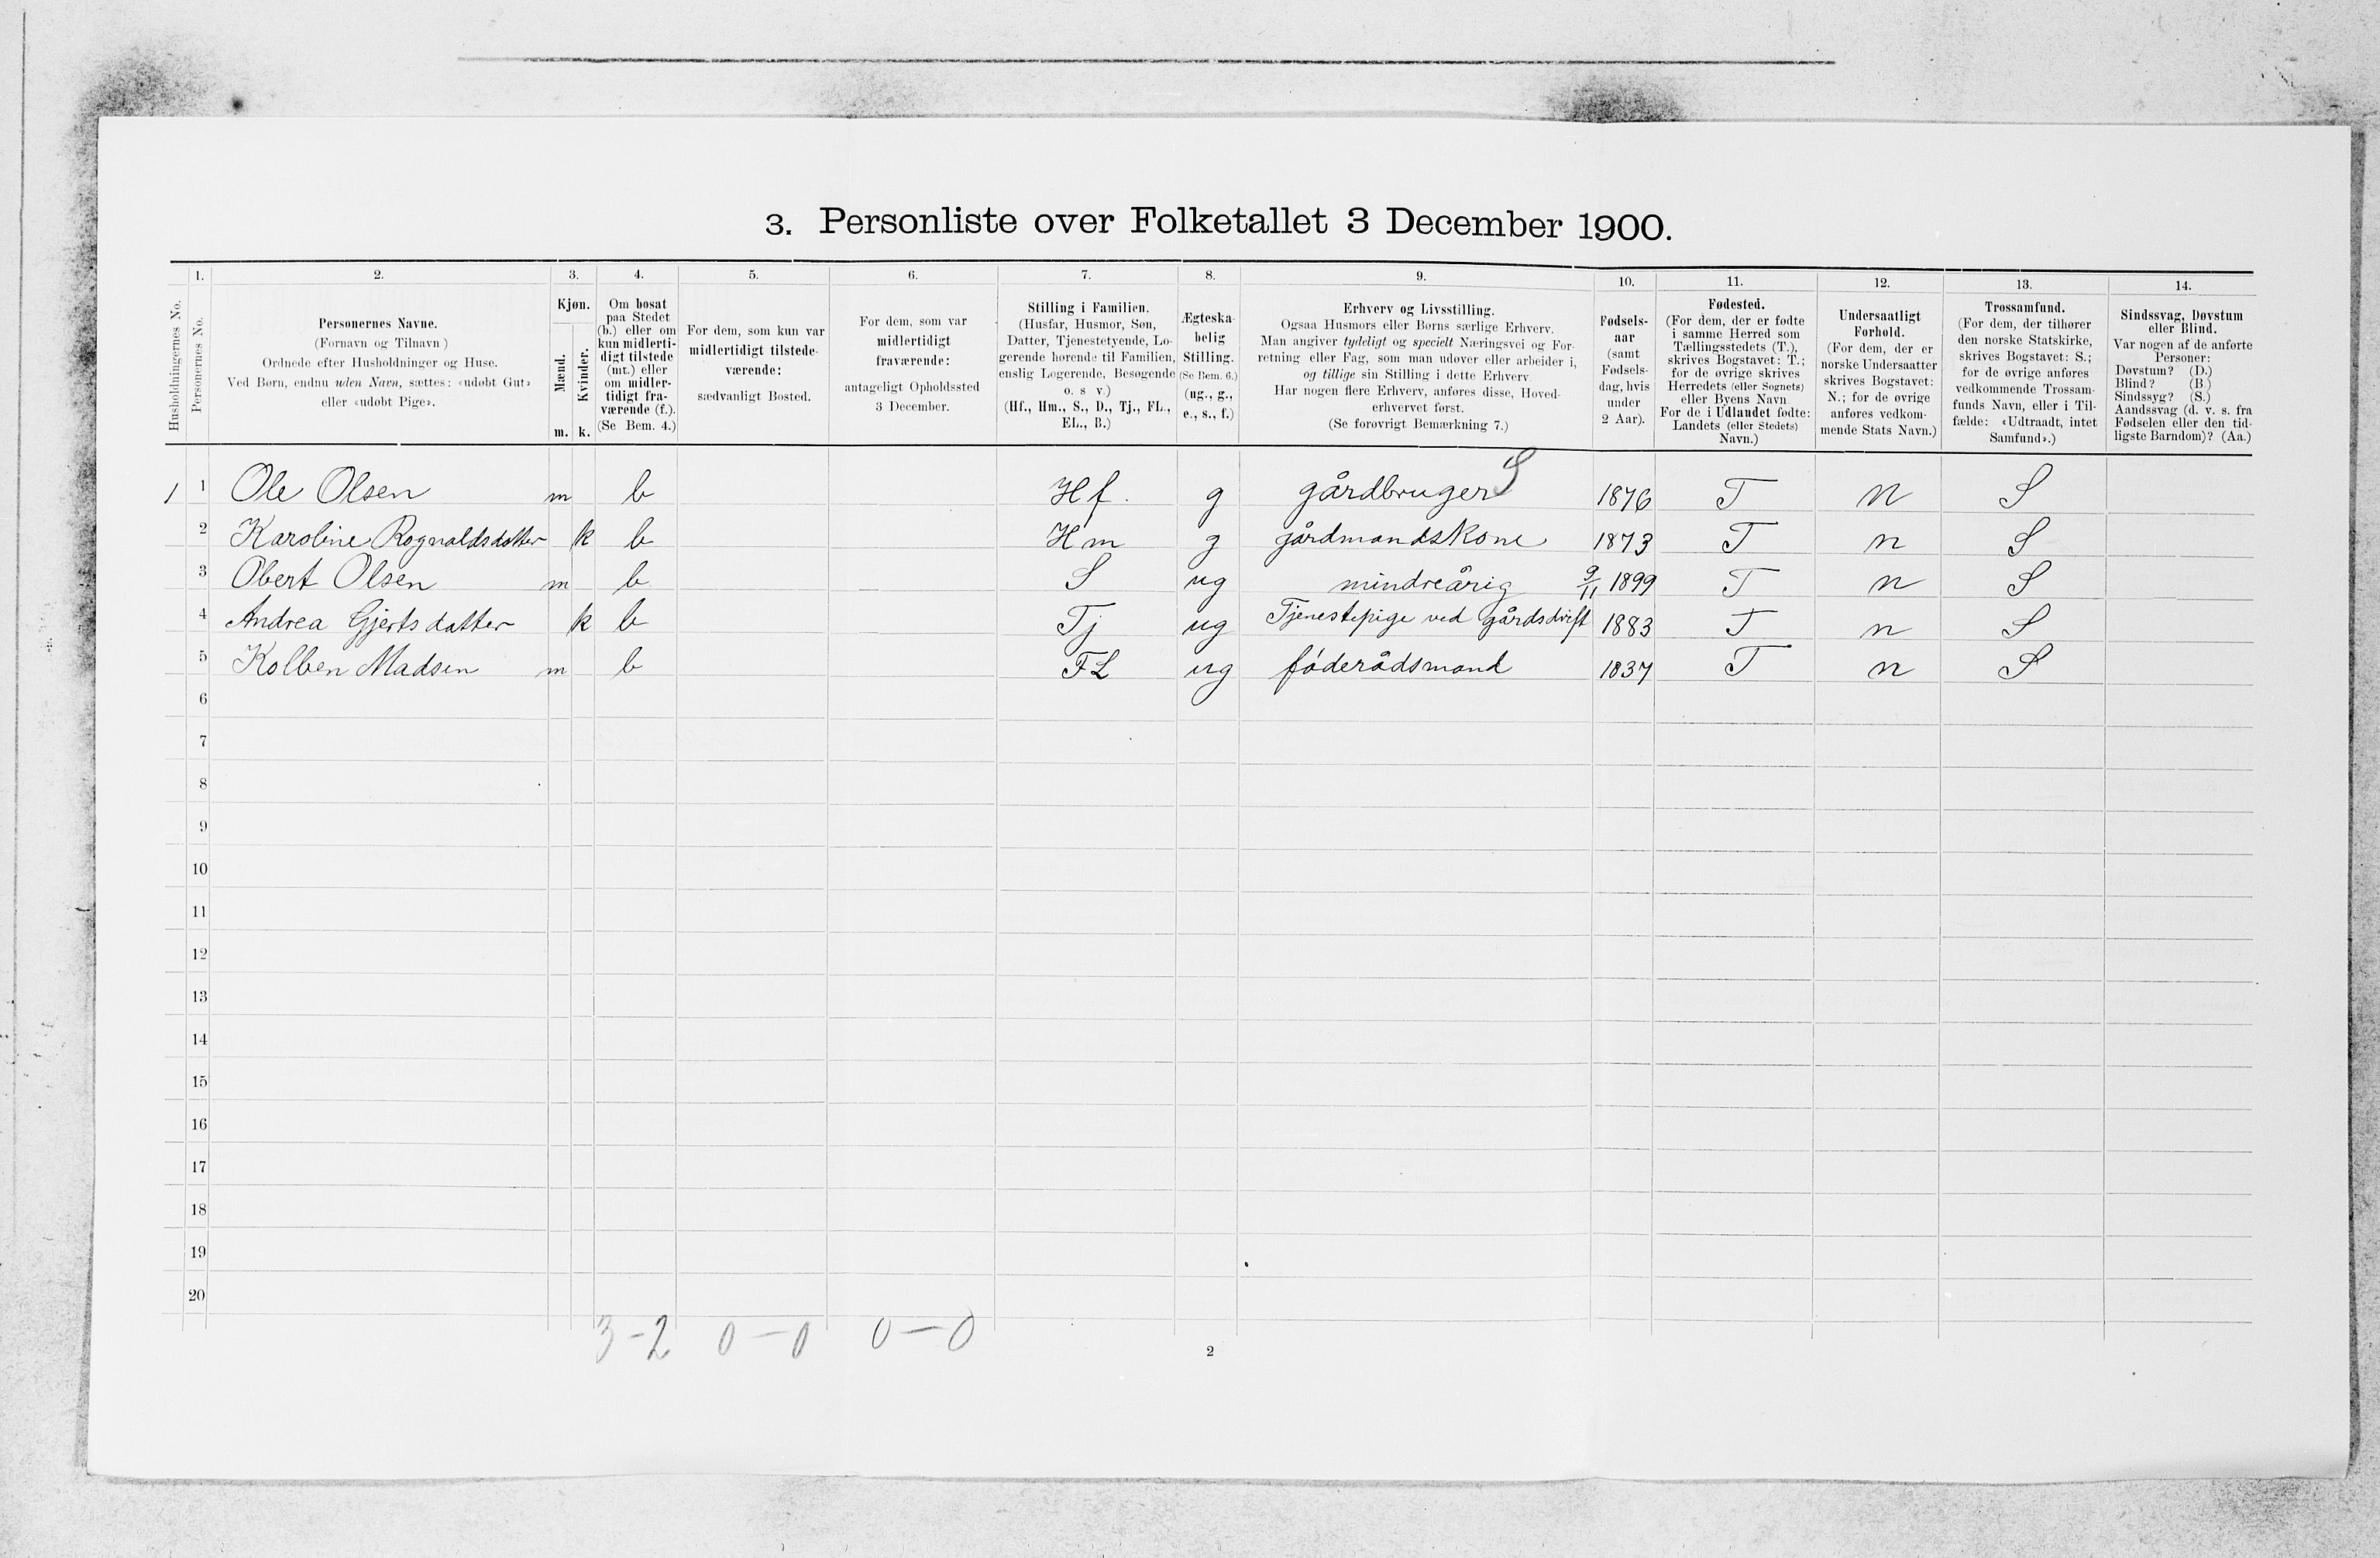 3. Personliste over Folketallet 3 December 1900.
Husholdningernes No.
1.
Personernes No.
2.
Personernes Navne.
(Fornavn og Tilnavn)
Ordnede efter Husholdninger og Huse.
Ved Børn, endnu uden Navn, sættes: «udøbt Gut»
eller «udøbt Pige».
3.
Kjøn.
Mænd.
Kvinder.
m. k.
4.
Om bosat
paa Stedet
(b.) eller om
kun midlerti-
digt tilstede
(mt.) eller
om midler-
tidigt fra-
værende (f.).
(Se Bem. 4.)
5.
For dem, som kun var
midlertidigt tilstede-
værende:
sædvanligt Bosted.
6.
For dem, som var
midlertidigt
fraværende:
antageligt Opholdssted
3 December.
7.
Stilling i Familien.
(Husfar, Husmor, Søn,
Datter, Tjenestetyende, Lo-
gerende hørende til Familien,
enslig Logerende, Besøgende
o. s v.)
(Hf., Hm., S., D., Tj., FL.,
EL., B.)
8.
Ægteska-
belig
Stilling.
(Se Bem. 6.)
(ug., g.,
e., s., f.)
9.
Erhverv og Livsstilling.
Ogsaa Husmors eller Børns særlige Erhverv.
Man angiver tydeligt og specielt Næringsvei og For-
retning eller Fag, som man udøver eller arbeider i,
og tillige sin Stilling i dette Erhverv.
Har nogen flere Erhverv, anføres disse, Hoved-
erhvervet først.
(Se forøvrigt Bemærkning 7.)
10.
Fødsels-
aar
(samt
Fødsels-
dag, hvis
under
2 Aar).
11.
Fødested.
(For dem, der er fødte
i samme Herred som
Tællingsstedets (T.),
skrives Bogstavet: T.;
for de øvrige skrives
Herredets (eller Sognets)
eller Byens Navn.
For de i Udlandet fødte:
Landets (eller Stedets)
Navn.)
12.
Undersaatligt
Forhold.
(For dem, der er
norske Undersaatter
skrives Bogstavet:
N.; for de øvrige
anføres vedkom-
mende Stats Navn.)
13.
Trossamfund.
(For dem, der tilhører
den norske Statskirke,
skrives Bogstavet: S.;
for de øvrige anføres
vedkommende Trossam-
funds Navn, eller i Til-
fælde: «Udtraadt, intet
Samfund».)
14.
Sindssvag, Døvstum
eller Blind.
Var nogen af de anførte
Personer:
Døvstum? (D.)
Blind? (B.)
Sindssyg? (S.)
Aandssvag (d. v. s. fra
Fødselen eller den tid-
ligste Barndom)? (Aa.)
1 1 Ole Olsen m b Hf. g gårdbruger S 1876 T n S
2 Karoline Rognaldsdatter k b Hm g gårdmandskone 1873 T n S
3 Obert Olsen m b S ug mindreårig 9/11 1899 T n S
4 Andrea Gjertsdatter k b Tj ug Tjenestepige ved gårdsdrift 1883 T n S
5 Kolben Madsen m b FL ug føderådsmand 1837 T n S
6
7
8
9
10
11
12
13
14
15
16
17
18
19
20
3-2 0-0 0-0
2